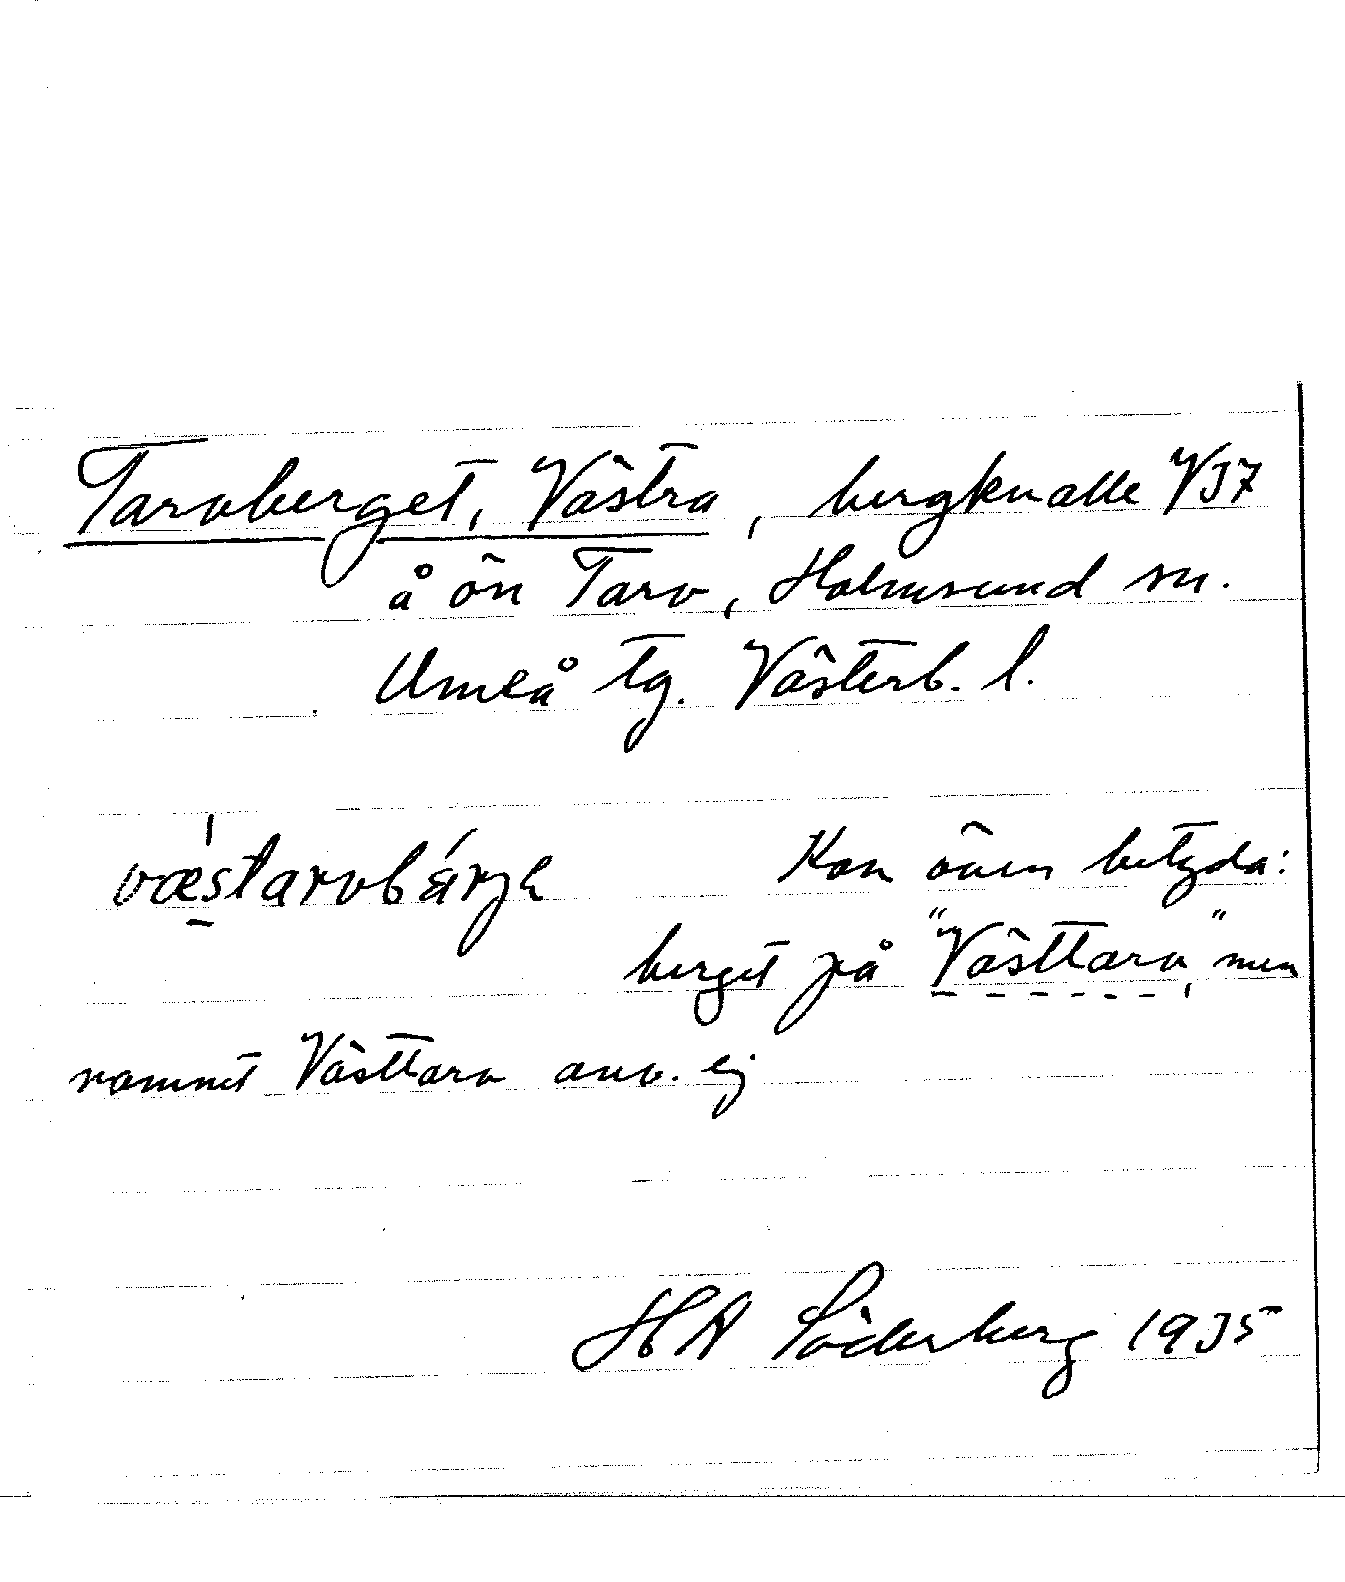 Tarvberget, Västra, bergknalle V37
å ön Tarv, Holmsund sn.
Umeå tg. Västerb. l.
væstarvbárjə
Kan även betyda:
berget på "Västtarv", men
namnet Västtarv anv. ej
HA Söderberg 1935